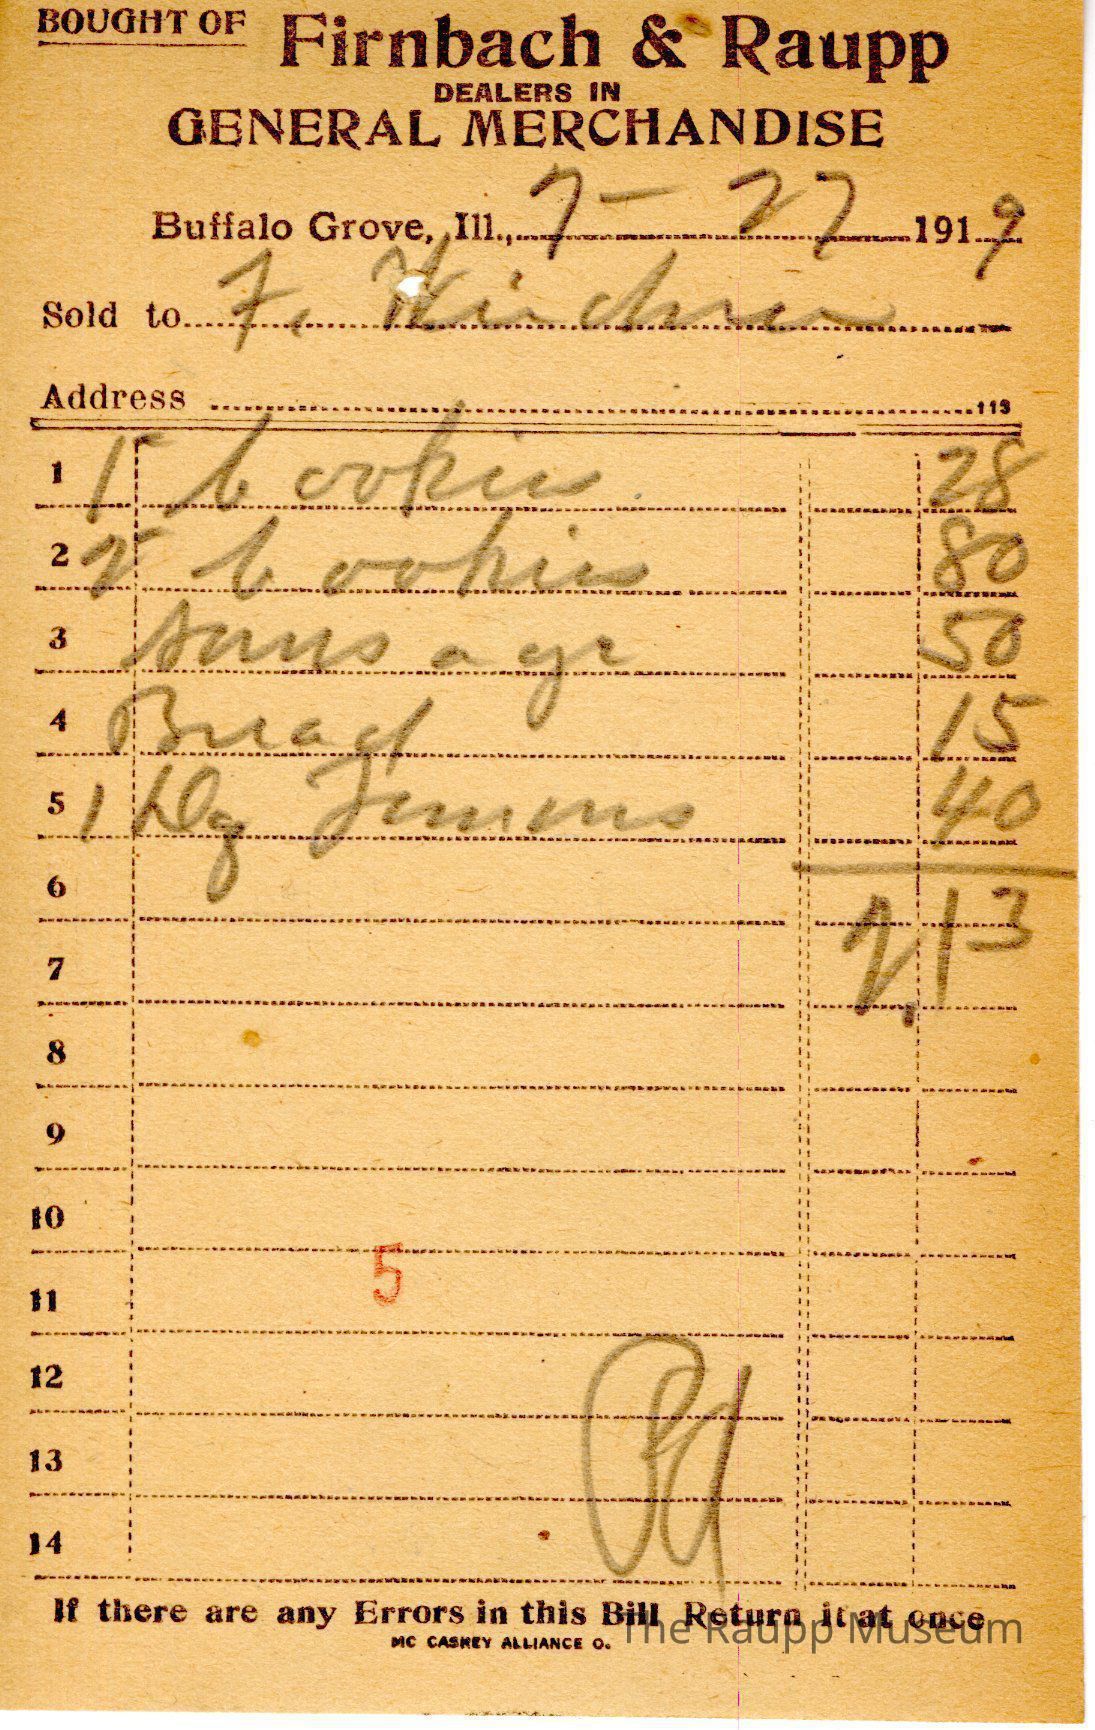 BOUGHT OF Firnbach & Raupp
DEALERS IN
GENERAL MERCHANDISE
Buffalo Grove, Ill., 7 - 27 1919
Sold to F.
Address 113
1 1 cookies 28
2 2 cookies 80
3 sausage 50
4 Bread 15
5 1 Dz 40
6 2.13
7
8
9
10
5
11
12
13
14
Pd
If there are any Errors in this Bill Return it at once
MC CASKEY ALLIANCE O.
The Raupp Museum